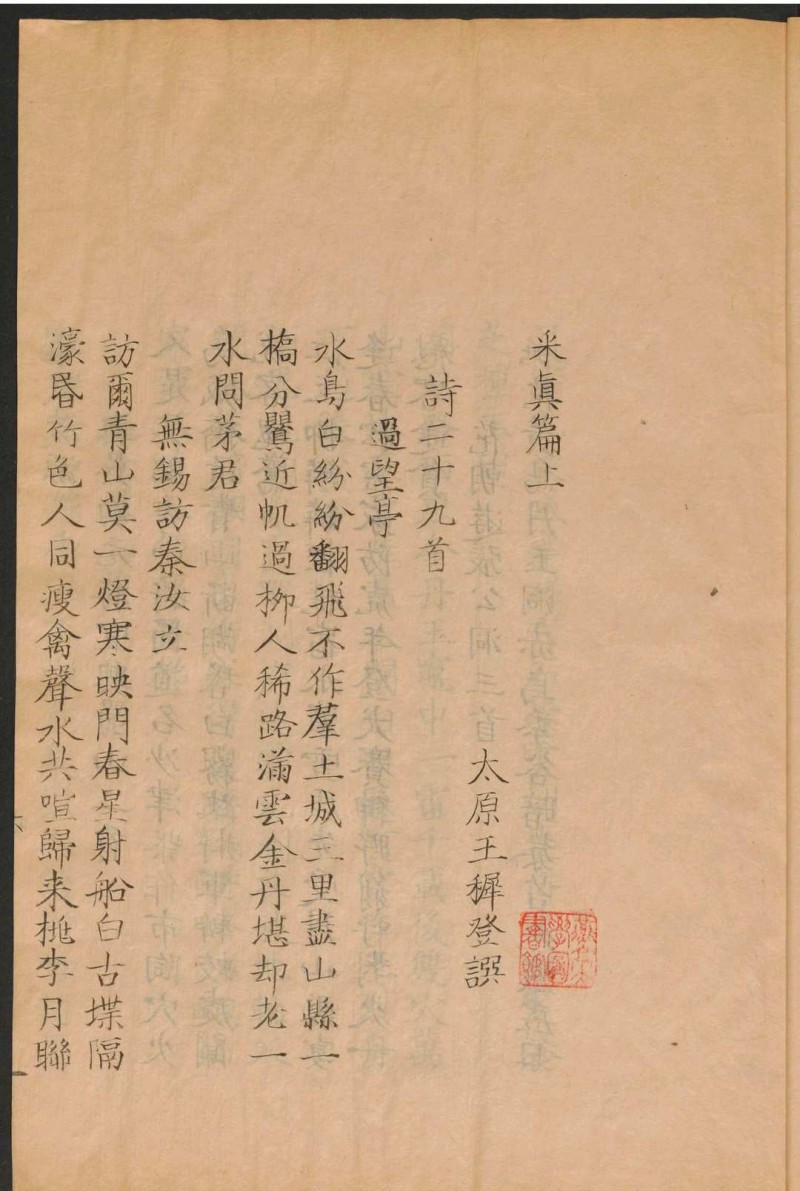 采眞篇上
太原王穉登譔
詩二十九首
過望亭
水鳥白紛紛翻飛不作羣土城三里盡山縣一
橋分鷖近帆過栁人稀路滿雲金丹堪却老一
水問茅君
無錫訪秦汝立
訪爾青山莫一燈寒映門春星射船白古堞隔
濠昏竹色人同瘦禽聲水共喧歸来桃李月聯